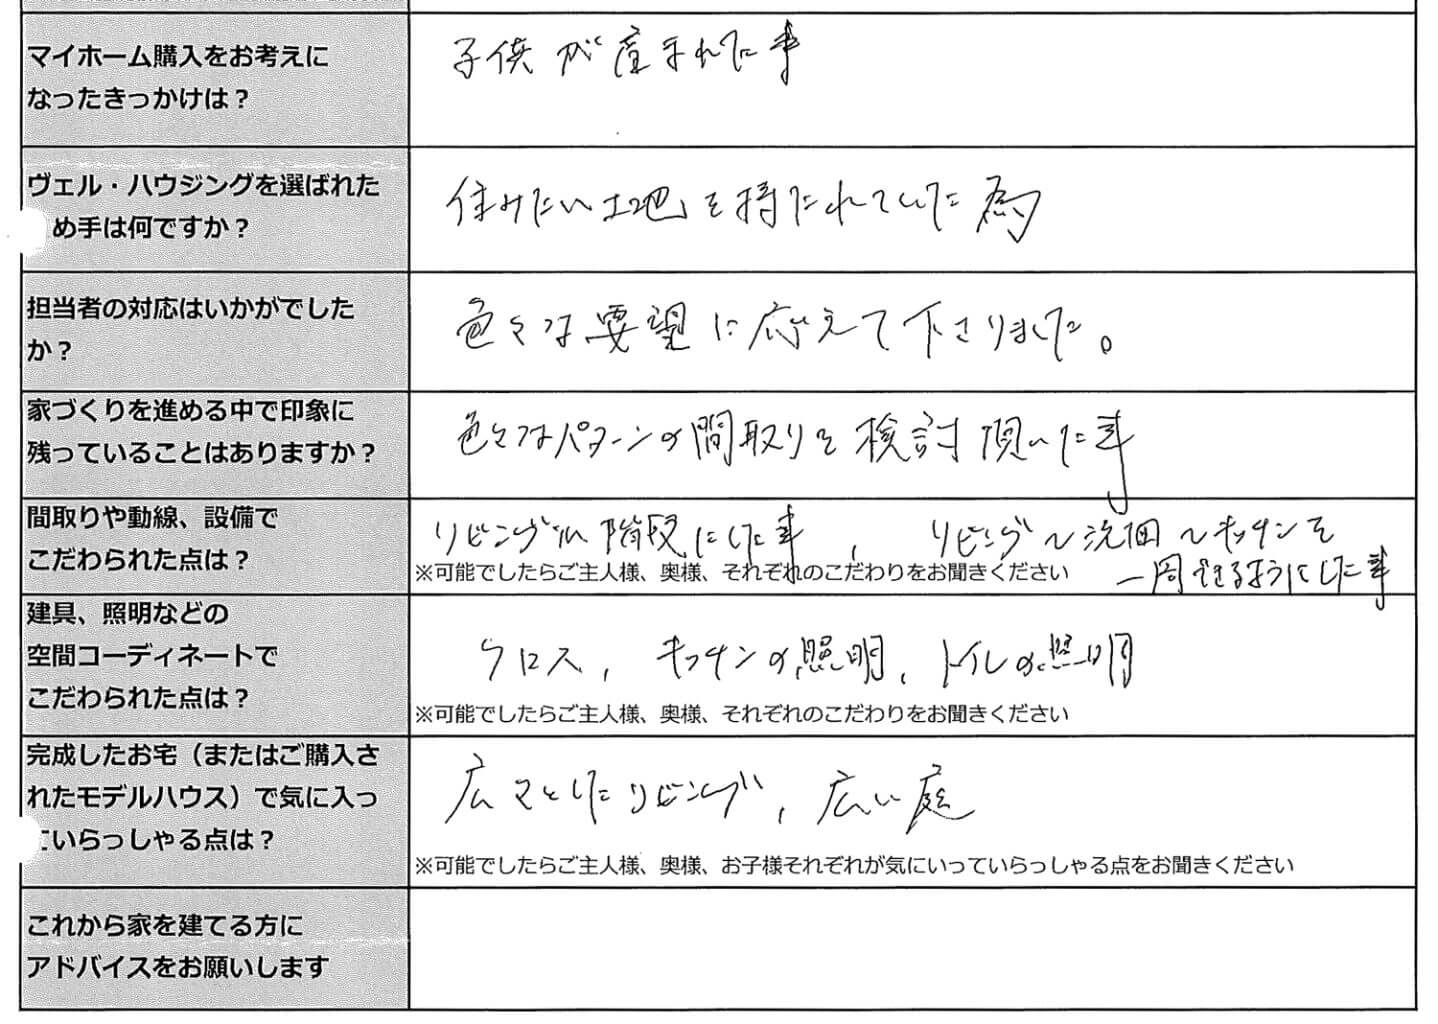 マイホーム購入をお考えに
なったきっかけは？
子供が産まれた事
ヴェル・ハウジングを選ばれた
め手は何ですか？
住みたい土地を持たれていた為
担当者の対応はいかがでした
か？
色々な要望に応えて下さりました。
家づくりを進める中で印象に
残っていることはありますか？
色々なパターンの間取りを検討頂いた事
間取りや動線、設備で
こだわられた点は？
リビングイン階段にした事、リビング～洗面～キッチンを
一周できるようにした事
※可能でしたらご主人様、奥様、それぞれのこだわりをお聞きください
建具、照明などの
空間コーディネートで
こだわられた点は？
クロス、キッチンの照明、トイレの照明
※可能でしたらご主人様、奥様、それぞれのこだわりをお聞きください
完成したお宅（またはご購入さ
れたモデルハウス）で気に入っ
ていらっしゃる点は？
広々としたリビング、広い庭
※可能でしたらご主人様、奥様、お子様それぞれが気にいっていらっしゃる点をお聞きください
これから家を建てる方に
アドバイスをお願いします